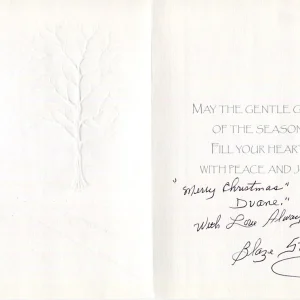 MAY THE GENTLE G
OF THE SEASON
FILL YOUR HEART
WITH PEACE AND J
"Merry Christmas"
Duane."
With Love Always
Blaze St